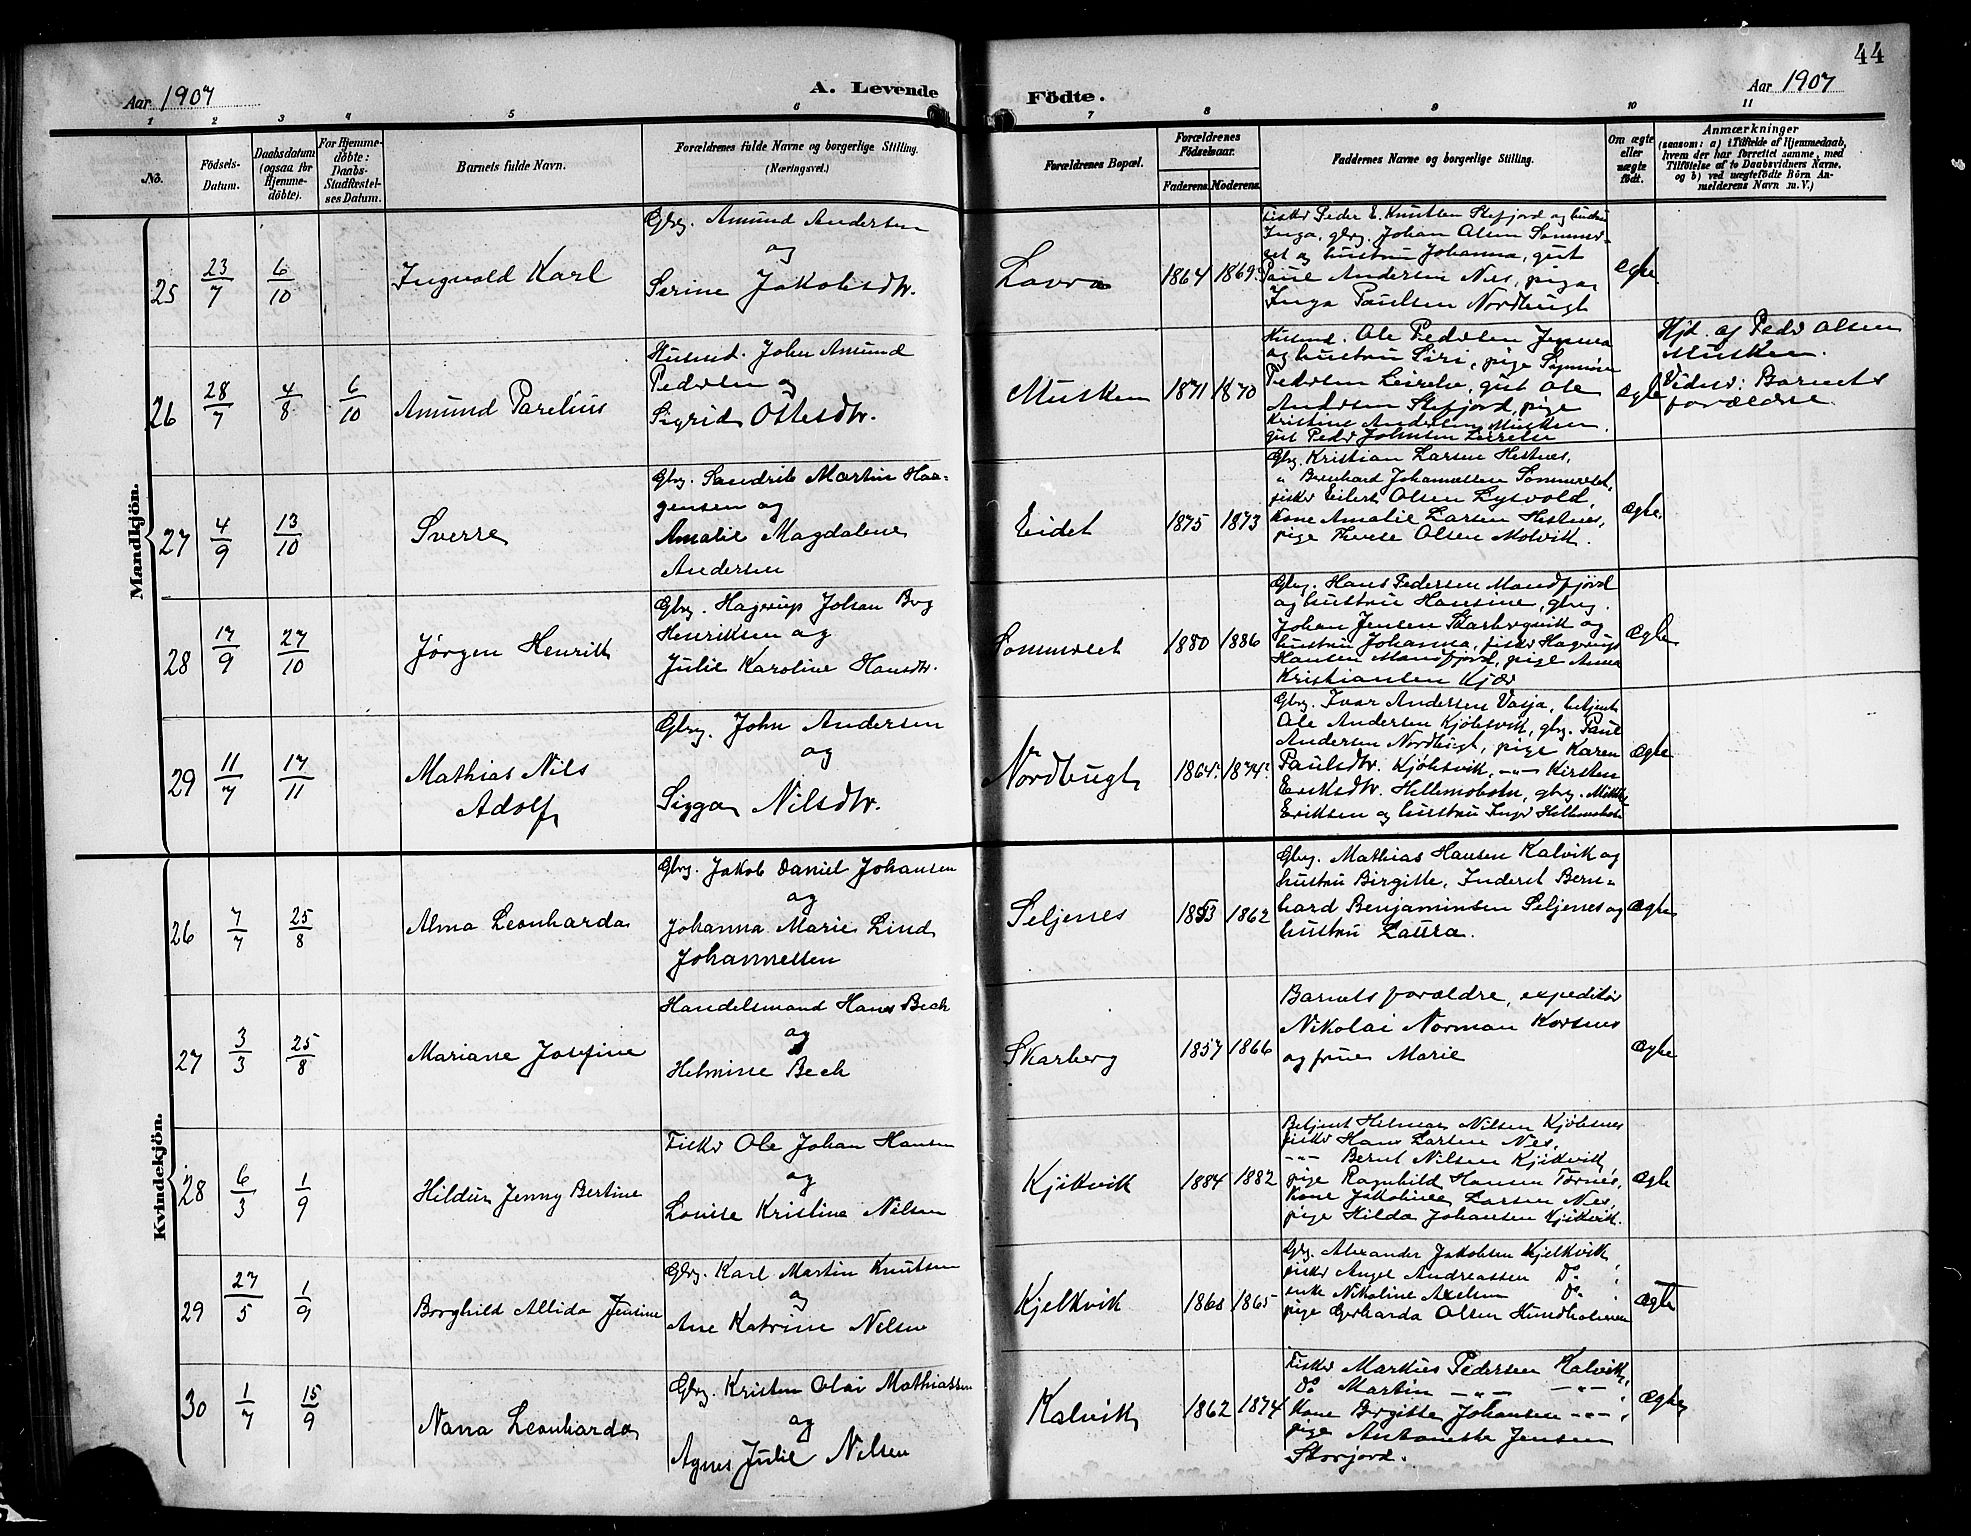 44
Aar 1907
A. Levende
Födte.
Aar 1907
1 2 3 4 5 6 7 8 9 10 11
No.
Födsels-
Datum.
Daabsdatum
(ogsaa for
Hjemme-
döbte).
For Hjemme-
döbte:
Daabs-
Stadfæstel-
ses Datum.
Barnets fulde Navn.
Forældrenes fulde Navne og borgerlige Stilling.
(Næringsvei.)
Forældrenes Bopæl.
Forældrenes
Födselsaar.
Faderens. Moderens.
Faddernes Navne og borgerlige Stilling.
Om ægte
eller
uægte
födt.
Anmærkninger
(saasom: a) i Tilfælde af Hjemmedaab,
hvem der har forrettet samme, med
Tilföielse af to Daabsvidners Navne,
og b) ved uægtefödte Börn An-
melderens Navn m. V.)
Mandkjön.
25
23/7
6/10
Ingvald Karl
Gbrg. Amund Andersen
og
Serine Jakobsdtr.
1864
1869
Fisker Peder E. Knutsen Stefjord og hustru
Inga, gbrg. Johan Olsen Sommer-
set og hustru Johanna, gut
Paul Andersen Nes, pige
Inga Paulsen Nordbugt
ægte
26
28/7
4/8
6/10
Amund Parelius
Husmd. John Amund
Pedersen og
Sigrid Ottesdtr.
Musken
1871
1870
Husmd. Ole Pedersen
og hustru Siri, pige
Pedersen Leirelv, gut Ole
Andersen Stefjord, pige
Kristine Andersen Musken
gut Peder Johnsen Leirelv
ægte
Hjd. af Peder Olsen
Musken.
Vidner: Barnets
forældre.
27
4/9
13/10
Sverre
Gbrg. Sandrik Martin Haa-
gensen og
Amalie Magdalene
Andersen
Eidet
1875
1873
Gbrg. Kristian Larsen Hestnes,
" Bernhard Johannessen Sommerset,
fisker Eilert Olsen Lysvold,
Kone Amalie Larsen Hestnes,
pige Olsen Molvik.
ægte.
28
17/9
27/10
Jørgen Henrik
Gbrg. Hagerup Johan Bog
Henriksen og
Julie Karoline Hansdtr.
Sommerset
1880
1886
Gbrg. Hans Pedersen Mandfjord
og hustru Hansine, gbrg.
Johan Jensen Skarbergvik og
hustru Johanna, fisker Hagerup
Hansen Mandfjord, pige Anna
Kristiansen Kjær
ægte
29
11/7
17/11
Mathias Nils
Adolf
Gbrg. John Andersen
og
Sigga Nilsdtr.
Nordbugt
1864.
1874.
Gbrg. Ivar Andersen Vasja, betjent
Ole Andersen Kjøbsvik, gbrg. Paul
Andersen Nordbugt, pige Karen
Paulsdtr. Kjøbsvik, -"- Kirsten
Eriksdtr. Hellemobotn, gbrg. Mikkel
Eriksen og hustru Inger Hellemobotn
ægte
Kvindekjön.
26
7/7
25/8
Alma Leonharda
Gbrg. Jakob Daniel Johansen
og
Johanna Marie Lind
Johannessen
Seljenes
1862
Gbrg. Mathias Hansen Kalvik og
hustru Birgitte, Inderst Bern-
hard Benjaminsen Seljenes og
hustru Laura.
ægte
27
3/3
25/8
Mariane Josefine
Handelsmand Hans Bech
og
Helmine Bech
Skarberg
1857
1866
Barnets forældre, expeditør
Nikolai Norman Korsnes
og frue Marie
ægte
28
6/3
1/9
Hildur Jenny Bertine
Fisker Ole Johan Hansen
og
Louise Kristine Nilsen
Kjikvik
1884
1882
Betjent Helmer Nilsen Kjöbsnes
fisker Hans Larsen Nes,
-"- Bernt Nilsen Kjikvik,
pige Ragnhild Hansen Tørnes,
Kone Jakobine Larsen Nes,
pige Hilda Johansen Kjikvik.
ægte
29
27/5
1/9
Borghild Alida Jensine
Gbrg. Karl Martin Knutsen
og
Ane Katrine Nilsen
Kjelkvik
1868
1865
Gbrg. Alexander Jakobsen Kjelkvik,
fisker Angel Andreassen Do. ,
enke Nikoline Axelsen Do. ,
pige Gerharda Olsen Hundholmen
ægte
30
1/7
15/9
Nana Leonharda
Gbrg. Kristen Olai Mathiassen
og
Agnes Julie Nilsen
Kalvik
1862
1874
Fisker Markus Pedersen Kalvik,
Do. Martin -"- -"- ,
Kone Birgitte Johansen -"- ,
pige Antonette Jensen
Storjord.
ægte